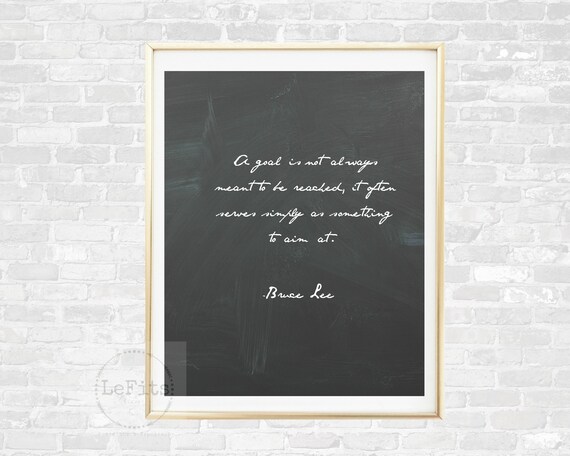 A goal is not always
meant to be reached, it often
serves simply as something
to aim at.
-Bruce Lee
LeFits